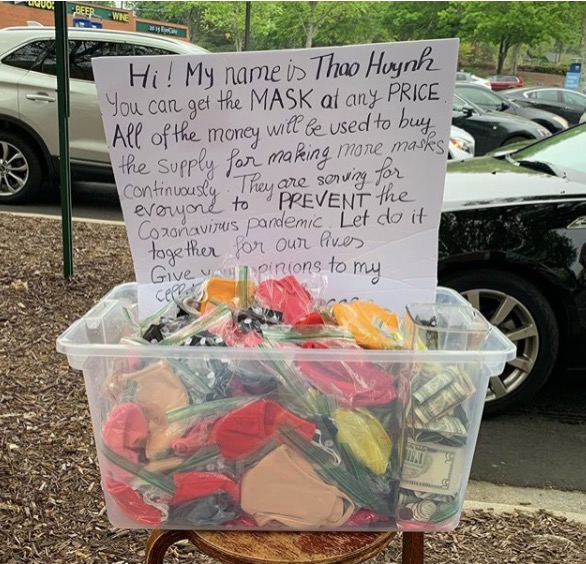 BEER WINE
Hi! My name is Thao Huynh
You can get the MASK at any PRICE.
All of the money will be used to buy
the supply for making more masks
continuously. They are serving for
everyone to PREVENT the
Coronavirus pandemic. Let do it
together for our lives
Give opinions to my